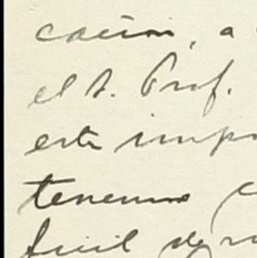 cación, a
el S. Prof.
este impo
tenemos c
fácil de